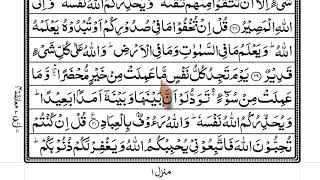 شَیْءٍ اِلَّاۤ اَنْ تَتَّقُوْا مِنْهُمْ تُقٰىةً ؕ وَ یُحَذِّرُكُمُ اللّٰهُ نَفْسَهٗ ؕ وَ اِلَى
اللّٰهِ الْمَصِیْرُ ﴿۲۸﴾ قُلْ اِنْ تُخْفُوْا مَا فِیْ صُدُوْرِكُمْ اَوْ تُبْدُوْهُ یَعْلَمْهُ
اللّٰهُ ؕ وَ یَعْلَمُ مَا فِی السَّمٰوٰتِ وَ مَا فِی الْاَرْضِ ؕ وَ اللّٰهُ عَلٰى كُلِّ شَیْءٍ
قَدِیْرٌ ﴿۲۹﴾ یَوْمَ تَجِدُ كُلُّ نَفْسٍ مَّا عَمِلَتْ مِنْ خَیْرٍ مُّحْضَرًا ۛۖۚ وَّ مَا
عَمِلَتْ مِنْ سُوْٓءٍ ۛۚ تَوَدُّ لَوْ اَنَّ بَیْنَهَا وَ بَیْنَهٗۤ اَمَدًۢا بَعِیْدًا ؕ
وَ یُحَذِّرُكُمُ اللّٰهُ نَفْسَهٗ ؕ وَ اللّٰهُ رَءُوْفٌۢ بِالْعِبَادِ ﴿۳۰﴾ قُلْ اِنْ كُنْتُمْ
تُحِبُّوْنَ اللّٰهَ فَاتَّبِعُوْنِیْ یُحْبِبْكُمُ اللّٰهُ وَ یَغْفِرْ لَكُمْ ذُنُوْبَكُمْ ؕ
منزل ۱